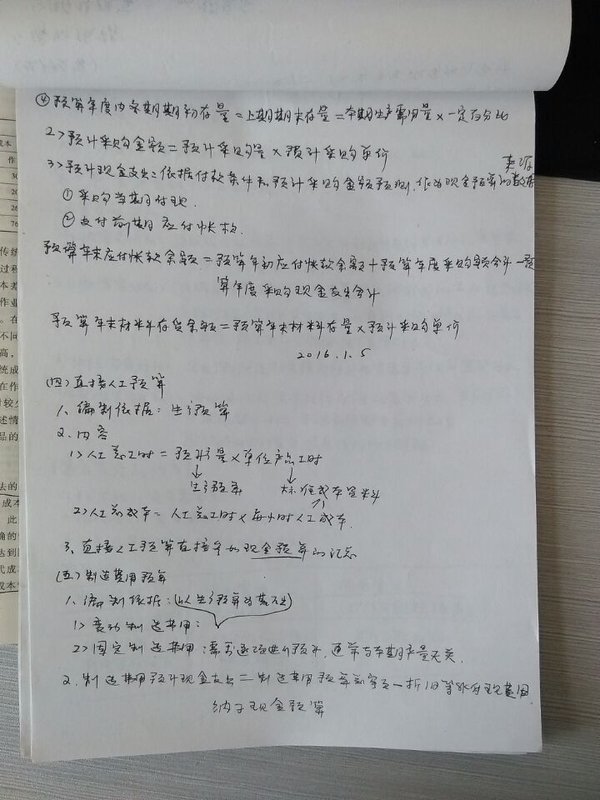 ④预算年度内各期期初存量=上期期末存量=本期生产需用量×一定百分比
2>预计采购金额=预计采购量×预计采购单价
来源
3>预计现金支出:依据付款条件和预计采购金额预测,作为现金预算的数据
①采购当期付现.
②支付前期应付账款.
预算年末应付账款余额=预算年初应付账款余额+预算年度采购金额合计-预
算年度采购现金支出合计
预算年末材料存货余额=预算年末材料存量×预计采购单价
2016.1.5
(四)直接人工预算
1、编制依据:生产预算
2、内容
1>人工总工时=预计产量×单位产品工时
生产预算 标准成本资料
2>人工总成本=人工总工时×每小时人工成本.
3、直接人工预算直接参加现金预算的汇总
(五)制造费用预算
1、编制依据:(以生产预算为基础)
1>变动制造费用:
2>固定制造费用:需要逐项进行预计,通常与本期产量无关.
2、制造费用预计现金支出=制造费用预算数额-折旧等非付现费用
纳于现金预算